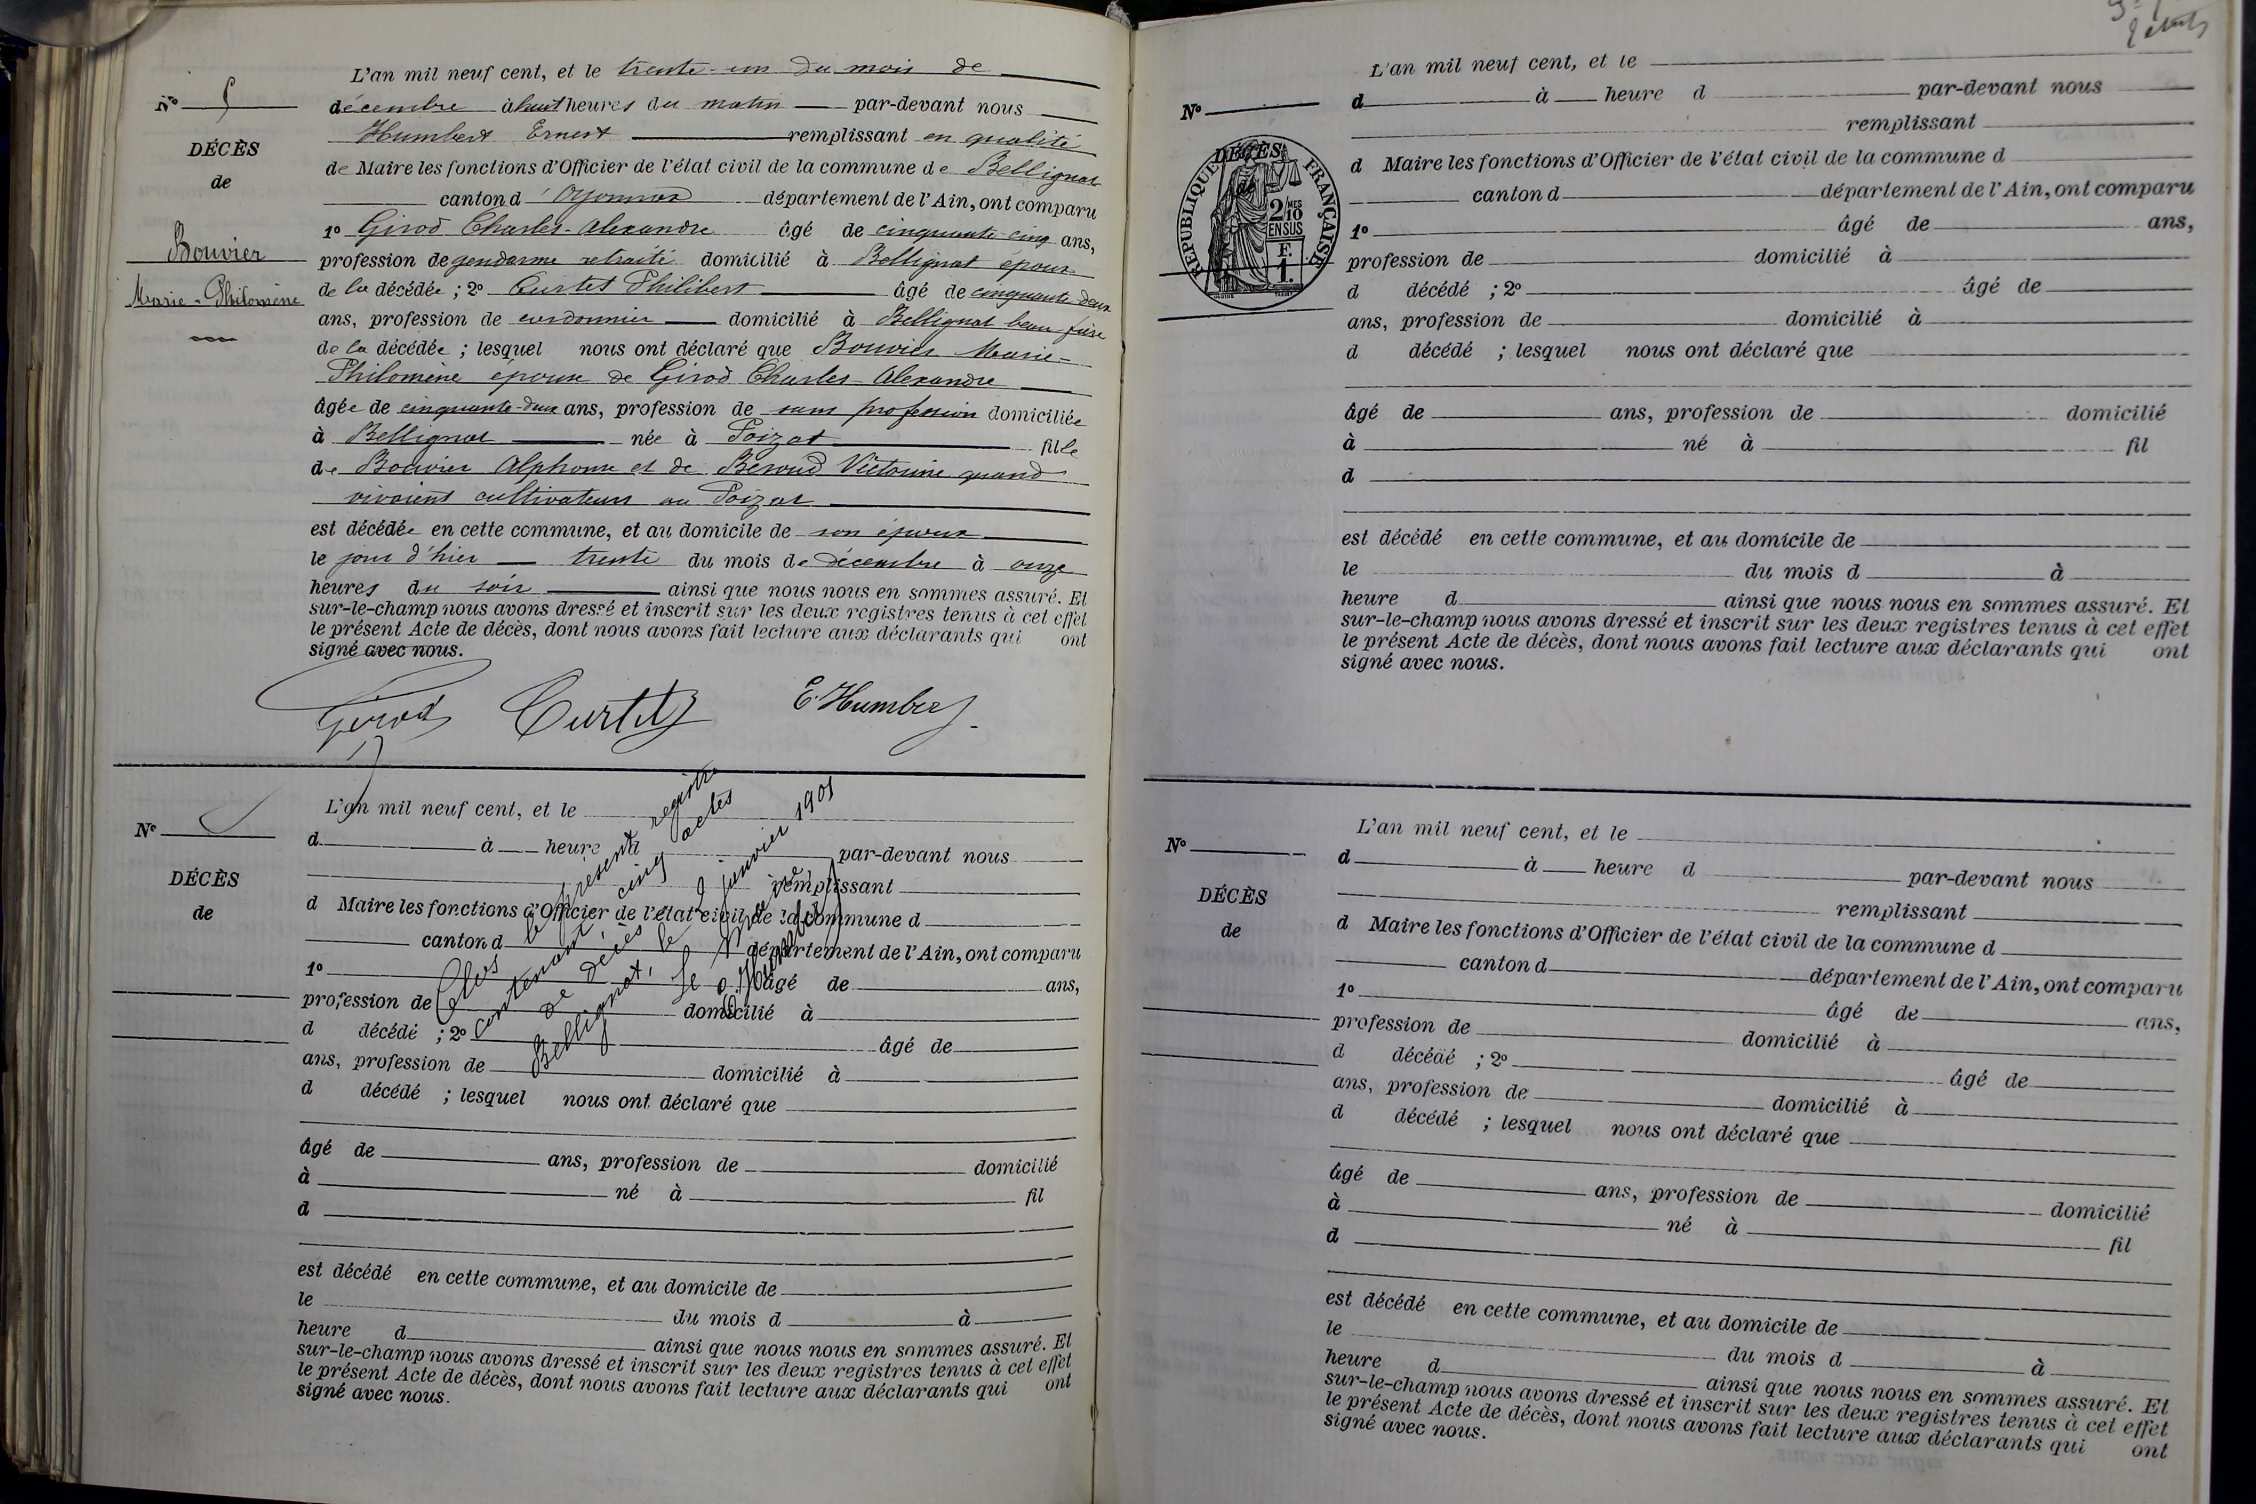 L'an mil neuf cent, et le trente-un du mois de
Nº 5
décembre à huit heures du matin par-devant nous
Humbert Ernest remplissant en qualité
DÉCÈS
de Maire les fonctions d'Officier de l'état civil de la commune de Bellignat
de
canton d'Oyonnax département de l'Ain, ont comparu
1º Girod Charles-Alexandre âgé de cinquante-cinq ans,
Bouvier
profession de gendarme retraité domicilié à Bellignat époux
Marie-Philomène
de la décédée ; 2º Curtet Philibert âgé de cinquante-deux
ans, profession de cordonnier domicilié à Bellignat beau frère
de la décédée ; lesquel nous ont déclaré que Bouvier Marie-
Philomène épouse de Girod Charles-Alexandre
âgée de cinquante-deux ans, profession de sans profession domiciliée
à Bellignat née à Poizat fille
de Bouvier Alphonse et de Beroud Victorine quand
vivaient cultivateurs au Poizat
est décédée en cette commune, et au domicile de son époux
le jour d'hier trente du mois de décembre à onze
heures du soir ainsi que nous nous en sommes assuré. Et
sur-le-champ nous avons dressé et inscrit sur les deux registres tenus à cet effet
le présent Acte de décès, dont nous avons fait lecture aux déclarants qui ont
signé avec nous.
Girod Curtet E. Humbert
L'an mil neuf cent, et le
Nº
d à heure d par-devant nous
remplissant
DÉCÈS
d Maire les fonctions d'Officier de l'état civil de la commune d
de
canton d département de l'Ain, ont comparu
1º âgé de ans,
profession de domicilié à
d décédé ; 2º âgé de
ans, profession de domicilié à
d décédé ; lesquel nous ont déclaré que
âgé de ans, profession de domicilié
à né à fil
d
est décédé en cette commune, et au domicile de
le du mois d à
heure d ainsi que nous nous en sommes assuré. Et
sur-le-champ nous avons dressé et inscrit sur les deux registres tenus à cet effet
le présent Acte de décès, dont nous avons fait lecture aux déclarants qui ont
signé avec nous.
Clos le présent registre
contenant cinq actes
de décès
Bellignat, le 2 janvier 1901
Le Maire,
E. Humbert
L'an mil neuf cent, et le
Nº
d à heure d par-devant nous
remplissant
DÉCÈS
d Maire les fonctions d'Officier de l'état civil de la commune d
de
canton d département de l'Ain, ont comparu
RÉPUBLIQUE FRANÇAISE
2/10MES
EN SUS
F.
1.
1º âgé de ans,
profession de domicilié à
d décédé ; 2º âgé de
ans, profession de domicilié à
d décédé ; lesquel nous ont déclaré que
âgé de ans, profession de domicilié
à né à fil
d
est décédé en cette commune, et au domicile de
le du mois d à
heure d ainsi que nous nous en sommes assuré. Et
sur-le-champ nous avons dressé et inscrit sur les deux registres tenus à cet effet
le présent Acte de décès, dont nous avons fait lecture aux déclarants qui ont
signé avec nous.
L'an mil neuf cent, et le
Nº
d à heure d par-devant nous
remplissant
DÉCÈS
d Maire les fonctions d'Officier de l'état civil de la commune d
de
canton d département de l'Ain, ont comparu
1º âgé de ans,
profession de domicilié à
d décédé ; 2º âgé de
ans, profession de domicilié à
d décédé ; lesquel nous ont déclaré que
âgé de ans, profession de domicilié
à né à fil
d
est décédé en cette commune, et au domicile de
le du mois d à
heure d ainsi que nous nous en sommes assuré. Et
sur-le-champ nous avons dressé et inscrit sur les deux registres tenus à cet effet
le présent Acte de décès, dont nous avons fait lecture aux déclarants qui ont
signé avec nous.